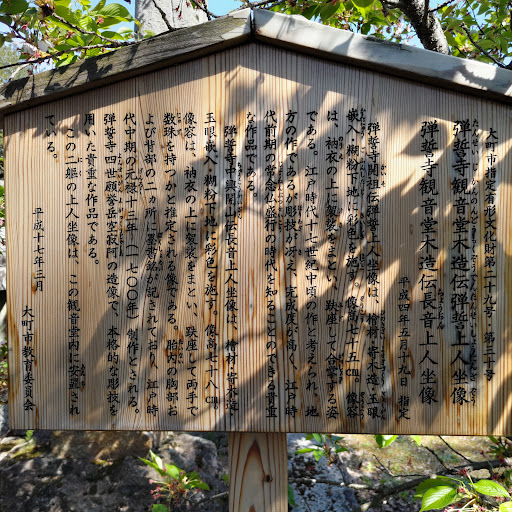 大町市指定有形文化財 第二十九号・第三十号
弾誓寺観音堂木造伝弾誓上人坐像
弾誓寺観音堂木造伝長音上人坐像
平成四年五月十九日 指定
弾誓寺開祖伝弾誓上人坐像は、檜材、寄木造、玉眼
嵌入、胡粉下地に彩色を施す。像高七十五㎝。像容
は、衲衣の上に袈裟をまとい、趺座して合掌する姿
である。江戸時代十七世紀中頃の作と考えられ、地
方の作であるが彫技が冴え、完成度が高く、江戸時
代前期の常念仏盛行の時代を知ることのできる貴重
な作品である。
弾誓寺中興開山伝長音上人坐像は、檜材、寄木造、
玉眼嵌入、胡粉下地に彩色を施す。像高七十八㎝。
像容は、衲衣の上に袈裟をまとい、趺座して両手で
数珠を持つかと推定される像である。胎内の胸部お
よび背部の二か所に墨書銘が記されており、江戸時
代中期の元禄十三年（一七〇〇年）制作とされる。
弾誓寺四世願誉岳空寂阿の造像で、本格的な彫技を
用いた貴重な作品である。
この二軀の上人坐像は、この観音堂内に安置され
ている。
平成十七年三月
大町市教育委員会